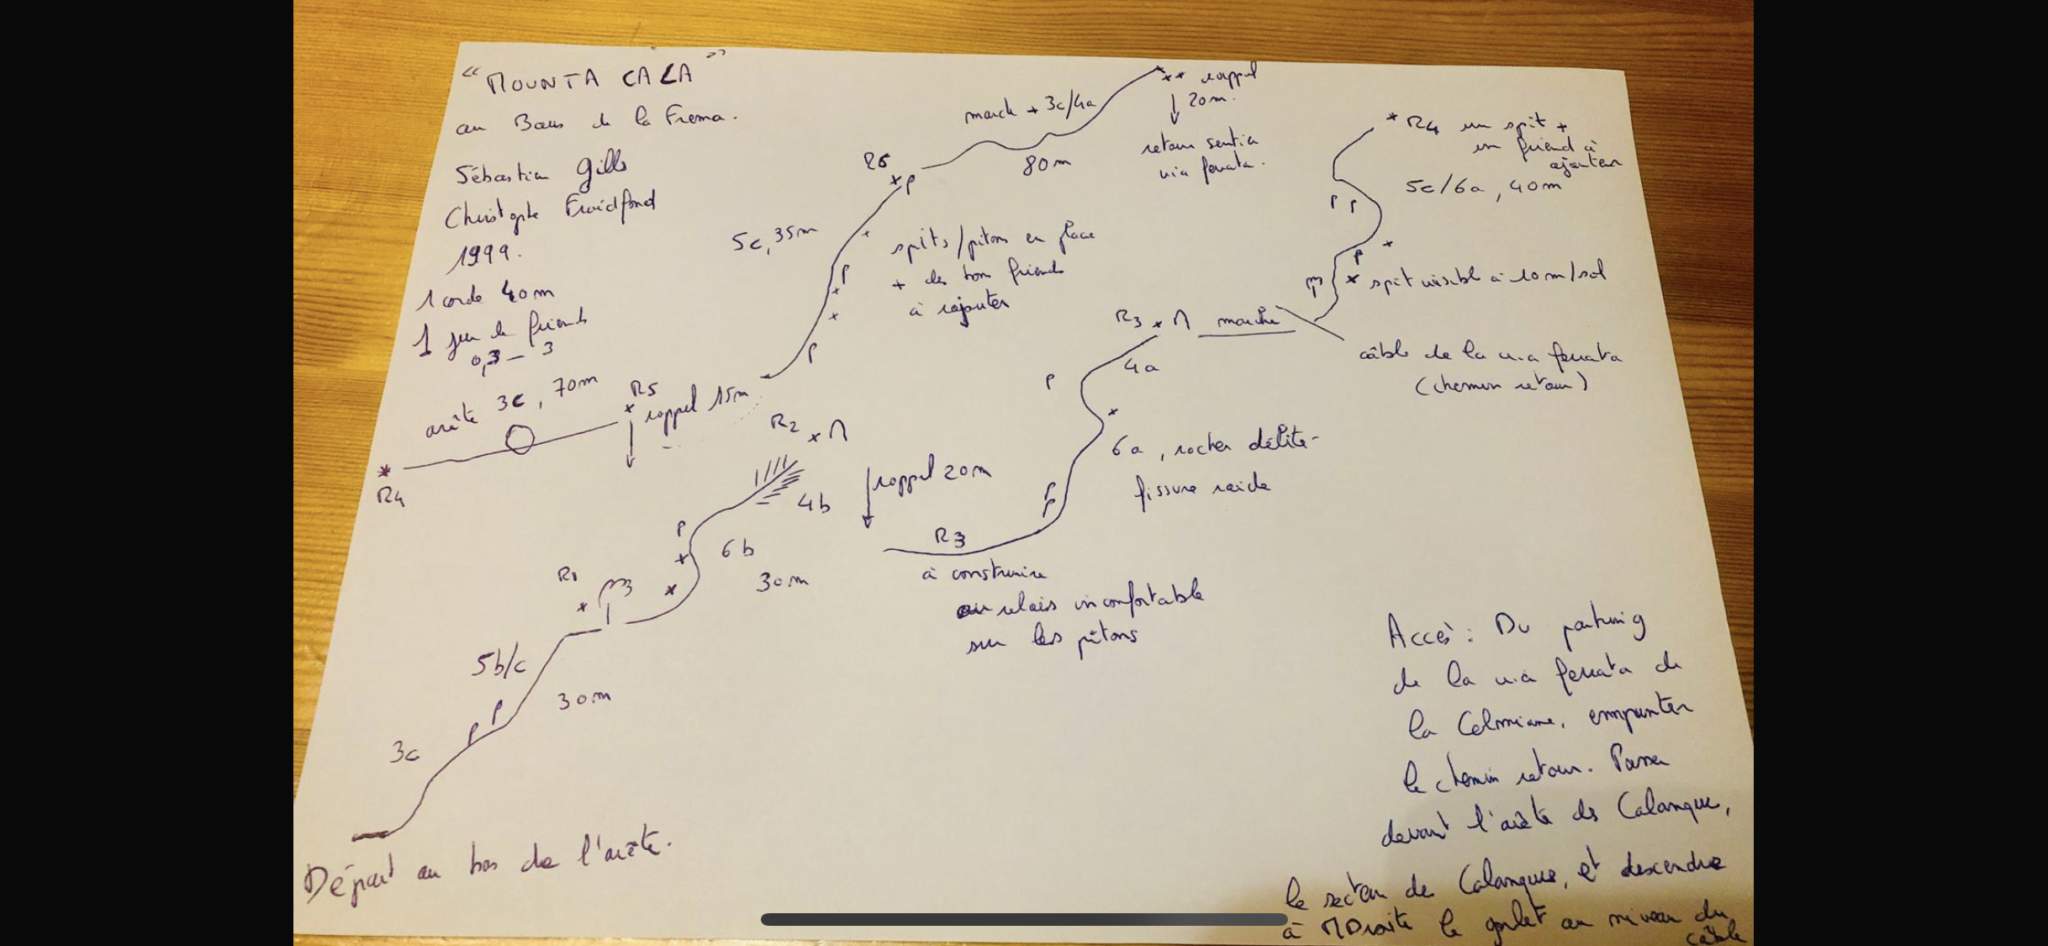 "MOUNTA CALA"
au Baus de la Frema.
Sébastien Gills
Christophe Froidfond
1999.
1 corde 40m
1 jeu de friends
0,3 - 3
Départ au bas de l'arête.
3c
P P
5b/c
30m
R1
6b
30m
P
4b
R2
rappel 20m
R3
à construire
ou relais inconfortable
sur les pitons
P
P
6a, rocher délité-
fissure raide
P
4a
R3
marche
câble de la via ferrata
(chemin retour)
spit visible à 10m/sol
P
P P
5c/6a, 40m
R4 un spit +
un friend à
ajouter
R4
arête 3c, 70m
R5
rappel 15m
P
P
5c, 35m
spits/pitons en place
+ des bons friends
à rajouter
R6
P
marche + 3c/4a
80m
rappel
20m.
retour sentier
via ferrata.
Accès: Du parking
de la via ferrata de
la Colmiane, emprunter
le chemin retour. Passer
devant l'arête de Calanque,
le secteur de Calanque, et descendre
à Droite le goulet au niveau du
câble